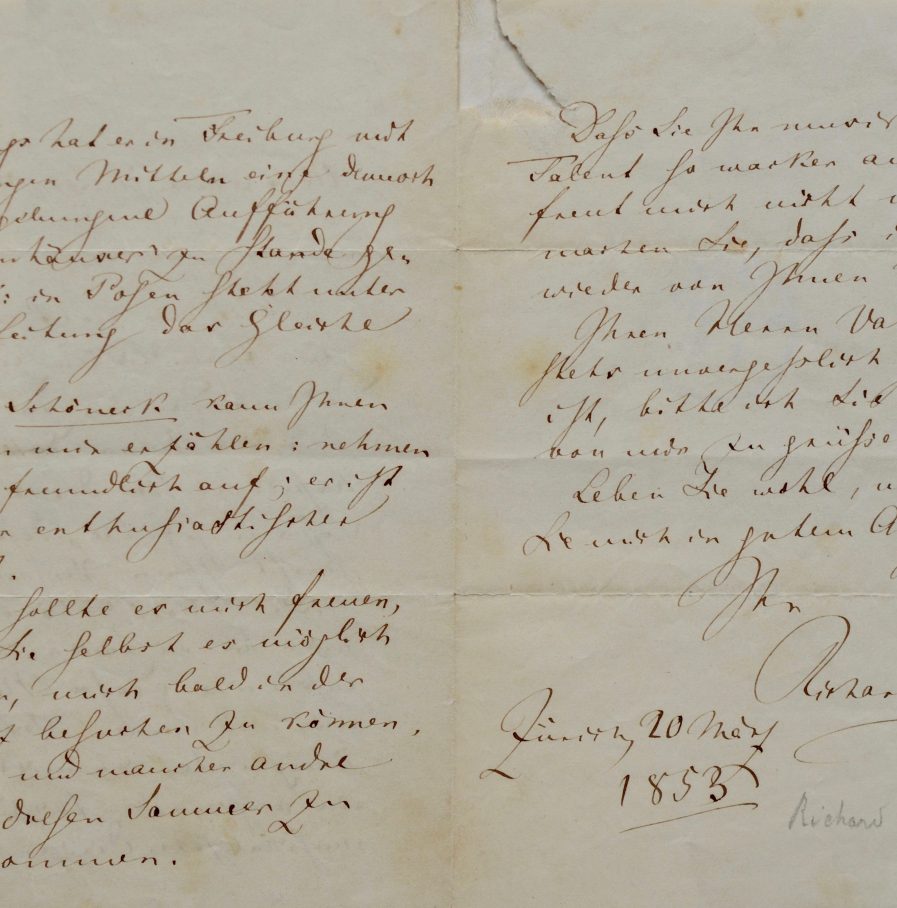 hat er in Freiburg mit
Mitteln eine dennoch
gelungene Aufführung
zu Stande ge„
: in Posen steht unter
Leitung das Gleiche
Schöneck kann Ihnen
mir erzählen : nehmen
freundlich auf ; er ist
enthusiastischer
sollte es mich freuen,
Sie selbst es möglich
mich bald in der
besuchen zu können,
und mancher andre
diesen Sommer zu
kommen.
Dass Sie Ihr
Talent so wacker
freut mich nicht
machen Sie, dass
wieder von Ihnen
Ihren Herrn Va
stets unvergesslich
ist, bitte ich Sie
von mir zu grüsse
Leben Sie wohl,
Sie mich in gutem
Ihr
Richar
Zürich, 20 März
1853
Richard